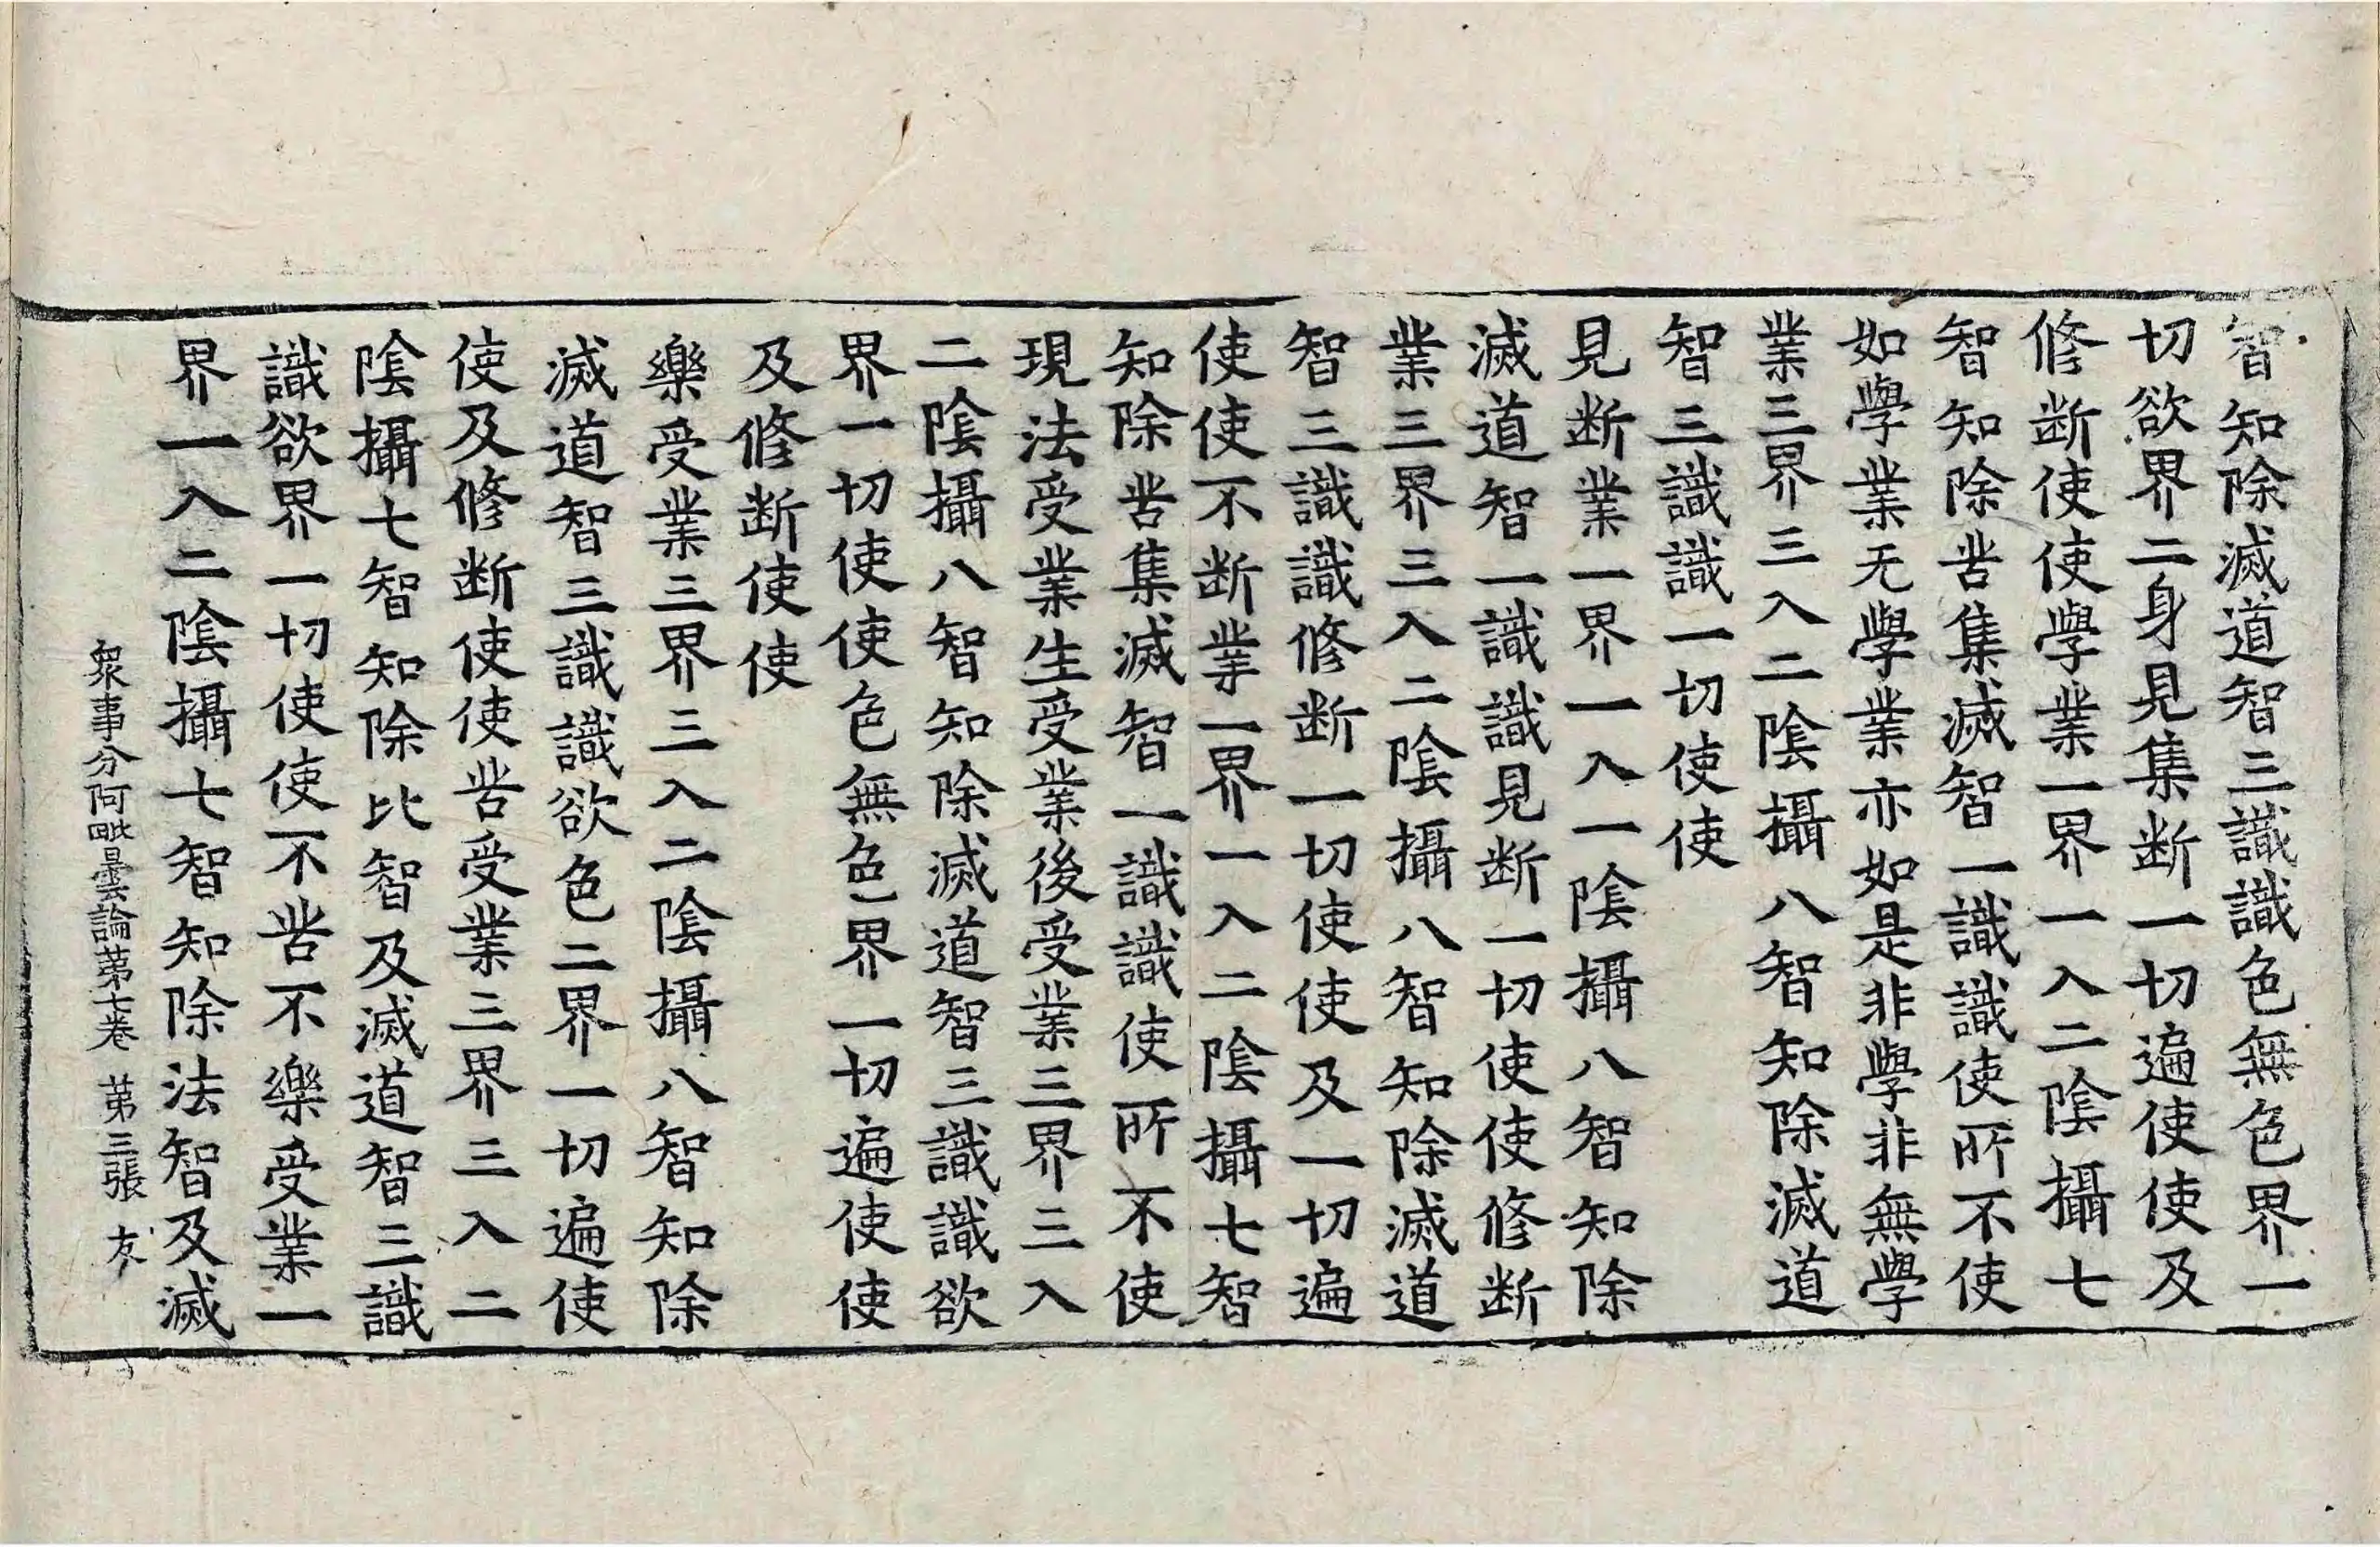 智知除滅道智三識識色無色界一
切欲界二身見集断一切遍使使及
修断使使學業一界一入二陰攝七
智知除苦集滅智一識識使所不使
如學業无學業亦如是非學非無學
業三界三入二陰攝八智知除滅道
智三識識一切使使
見断業一界一入一陰攝八智知除
滅道智一識識見断一切使使修断
業三界三入二陰攝八智知除滅道
智三識識修断一切使使及一切遍
使使不断業一界一入二陰攝七智
知除苦集滅智一識識使所不使
現法受業生受業後受業三界三入
二陰攝八智知除滅道智三識識欲
界一切使使色無色界一切遍使使
及修断使使
樂受業三界三入二陰攝八智知除
滅道智三識識欲色二界一切遍使
使及修断使使苦受業三界三入二
陰攝七智知除比智及滅道智三識
識欲界一切使使不苦不樂受業一
界一入二陰攝七智知除法智及滅
衆事分阿毗曇論第七卷 第三張 友